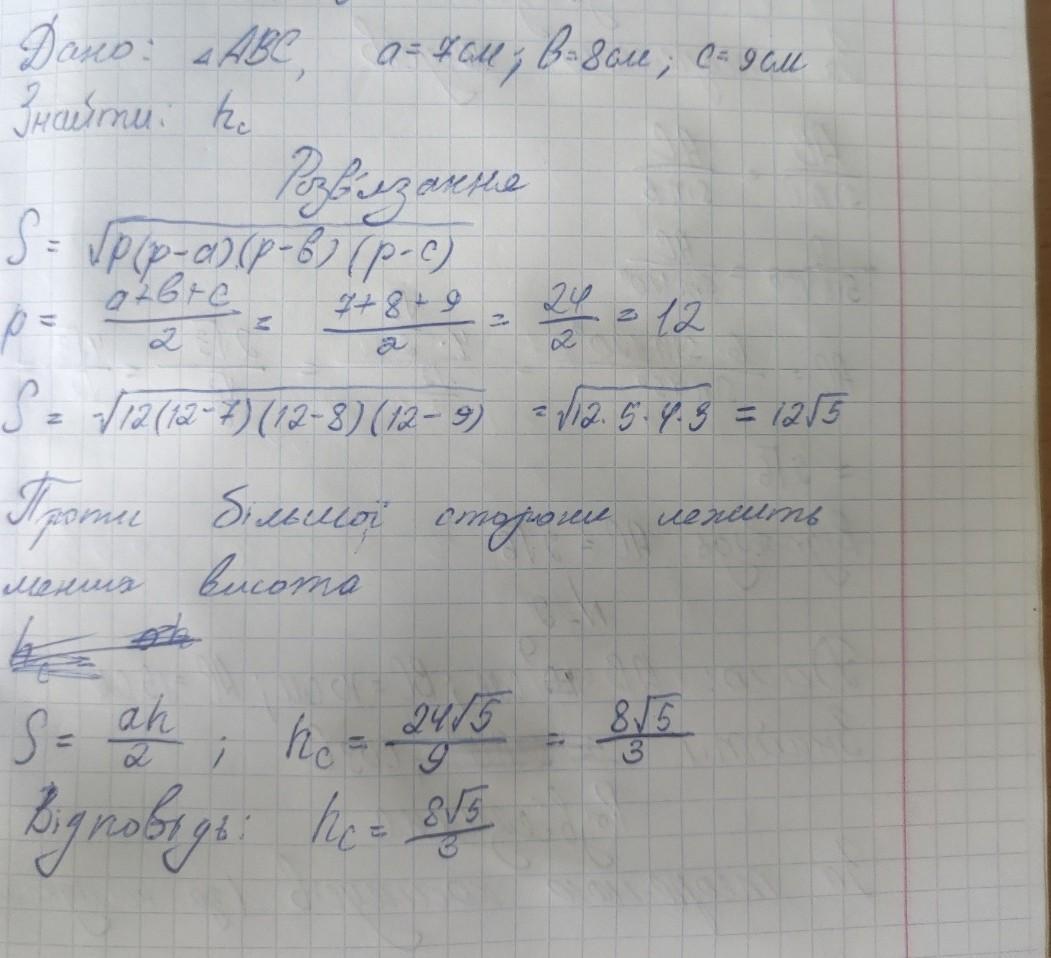 Дано: △ABC, a=7см; b=8см; c=9см
Знайти: h_c
Розв'язання
S = √(p(p-a)(p-b)(p-c))
p = (a+b+c)/2 = (7+8+9)/2 = 24/2 = 12
S = √(12(12-7)(12-8)(12-9)) = √(12·5·4·3) = 12√5
Проти більшої сторони лежить
менша висота
S = ah/2 ; h_c = 24√5/9 = 8√5/3
Відповідь: h_c = 8√5/3